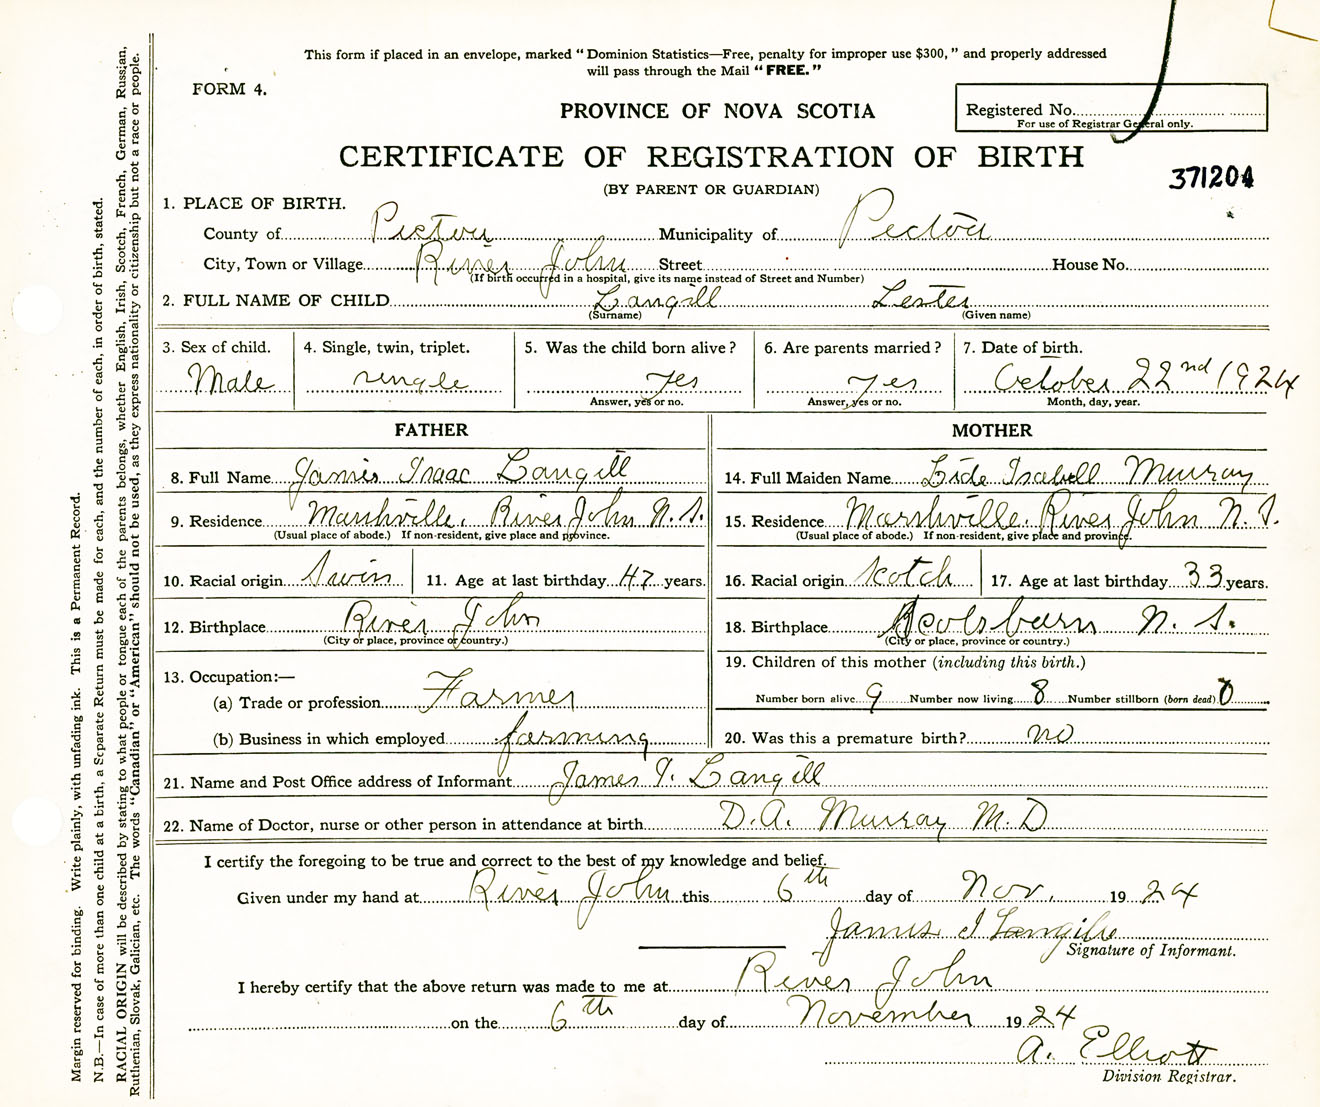 This form if placed in an envelope, marked "Dominion Statistics—Free, penalty for improper use $300," and properly addressed
will pass through the Mail "FREE."
FORM 4.
PROVINCE OF NOVA SCOTIA
Registered No.
For use of Registrar General only.
CERTIFICATE OF REGISTRATION OF BIRTH
371204
(BY PARENT OR GUARDIAN)
1. PLACE OF BIRTH.
County of Pictou Municipality of Pictou
City, Town or Village River John Street House No.
(If birth occurred in a hospital, give its name instead of Street and Number)
2. FULL NAME OF CHILD Langill Lester
(Surname) (Given name)
3. Sex of child. 4. Single, twin, triplet. 5. Was the child born alive? 6. Are parents married? 7. Date of birth.
Male single yes yes October 22nd 1924
Answer, yes or no. Answer, yes or no. Month, day, year.
FATHER MOTHER
8. Full Name James Isaac Langill 14. Full Maiden Name Lide Isabell Murray
9. Residence Marshville, River John N.S. 15. Residence Marshville, River John N.S.
(Usual place of abode.) If non-resident, give place and province. (Usual place of abode.) If non-resident, give place and province.
10. Racial origin Swiss 11. Age at last birthday 47 years. 16. Racial origin Scotch 17. Age at last birthday 33 years.
12. Birthplace River John 18. Birthplace Scotsburn N. S.
(City or place, province or country.) (City or place, province or country.)
13. Occupation:— 19. Children of this mother (including this birth.)
(a) Trade or profession Farmer Number born alive 9 Number now living 8 Number stillborn (born dead) 0
(b) Business in which employed farming 20. Was this a premature birth? no
21. Name and Post Office address of Informant James I. Langill
22. Name of Doctor, nurse or other person in attendance at birth D.A. Murray M.D
I certify the foregoing to be true and correct to the best of my knowledge and belief.
Given under my hand at River John this 6th day of Nov. 1924
James I Langille
Signature of Informant.
I hereby certify that the above return was made to me at River John
on the 6th day of November 1924
A. Elliott
Division Registrar.
Margin reserved for binding. Write plainly, with unfading ink. This is a Permanent Record.
N.B.—In case of more than one child at a birth, a Separate Return must be made for each, and the number of each, in order of birth, stated.
RACIAL ORIGIN will be described by stating to what people or tongue each of the parents belongs, whether English, Irish, Scotch, French, German, Russian,
Ruthenian, Slovak, Galician, etc. The words "Canadian" or "American" should not be used, as they express nationality or citizenship but not a race or people.